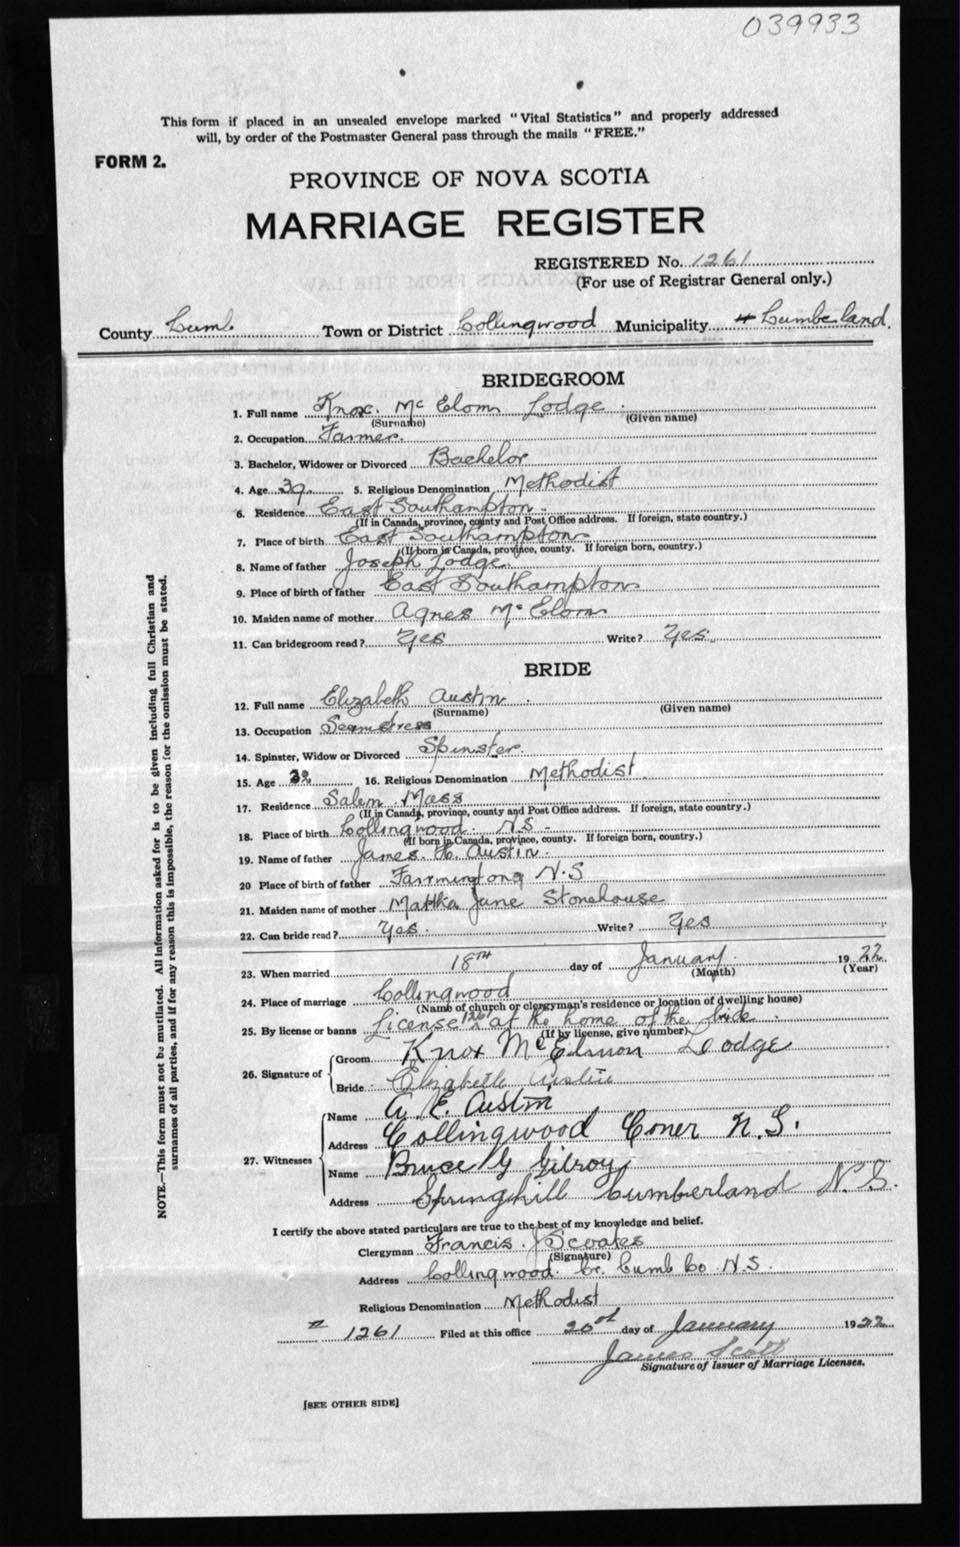 039933
This form if placed in an unsealed envelope marked "Vital Statistics" and properly addressed
will, by order of the Postmaster General pass through the mails "FREE."
FORM 2.
PROVINCE OF NOVA SCOTIA
MARRIAGE REGISTER
REGISTERED No. 1261
(For use of Registrar General only.)
County Cumb Town or District Collingwood Municipality Cumberland.
BRIDEGROOM
1. Full name Knox. Mc Elom Lodge.
(Surname) (Given name)
2. Occupation Farmer.
3. Bachelor, Widower or Divorced Bachelor
4. Age 39 5. Religious Denomination Methodist
6. Residence East Southampton.
(If in Canada, province, county and Post Office address. If foreign, state country.)
7. Place of birth East Southampton
(If born in Canada, province, county. If foreign born, country.)
8. Name of father Joseph Lodge.
9. Place of birth of father East Southampton
10. Maiden name of mother Agnes Mc Elom
11. Can bridegroom read? Yes Write? Yes.
BRIDE
12. Full name Elizabeth Austin.
(Surname) (Given name)
13. Occupation Seamstress
14. Spinster, Widow or Divorced Spinster.
15. Age 16. Religious Denomination Methodist.
17. Residence Salem Mass
(If in Canada, province, county and Post Office address. If foreign, state country.)
18. Place of birth Collingwood. N.S.
(If born in Canada, province, county. If foreign born, country.)
19. Name of father James. Austin.
20 Place of birth of father N.S
21. Maiden name of mother Martha Jane Stonehouse
22. Can bride read? Yes. Write? Yes
23. When married 18TH day of January. 1922
(Month) (Year)
24. Place of marriage Collingwood
(Name of church or clergyman's residence or location of dwelling house)
25. By license or banns License 1261 at the home of the bride.
(If by license, give number)
26. Signature of Groom Knox McElmon Lodge
Bride Elizabeth Austin
27. Witnesses Name A. E. Austin
Address Collingwood Coner N.S.
Name Bruce G Gilroy
Address Springhill Cumberland N.S.
I certify the above stated particulars are true to the best of my knowledge and belief.
Clergyman Francis. J Scoates
(Signature)
Address Collingwood. Cr. Cumb Co. N.S.
Religious Denomination Methodist
1261 Filed at this office 20nd day of January 1922
James Scott
Signature of Issuer of Marriage Licenses.
[SEE OTHER SIDE]
NOTE.—This form must not be mutilated. All information asked for is to be given including full Christian and
surnames of all parties, and if for any reason this is impossible, the reason for the omission must be stated.